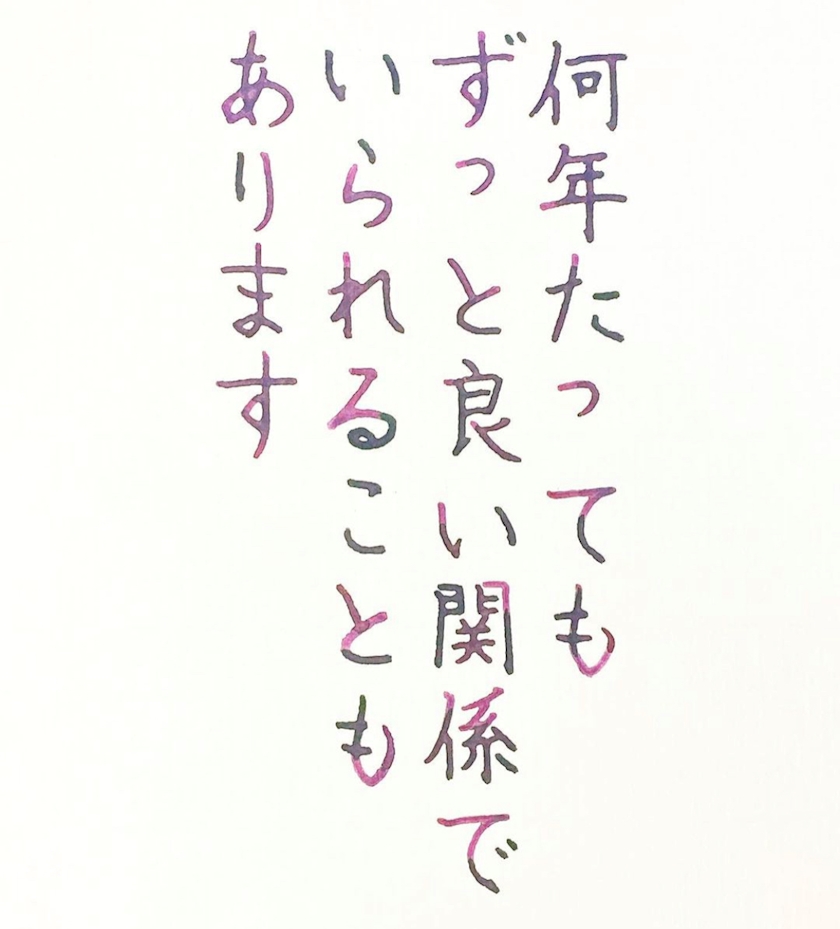 何年たっても
ずっと良い関係で
いられることも
あります